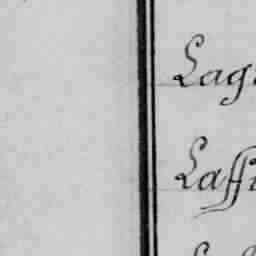 Lag
Laffi